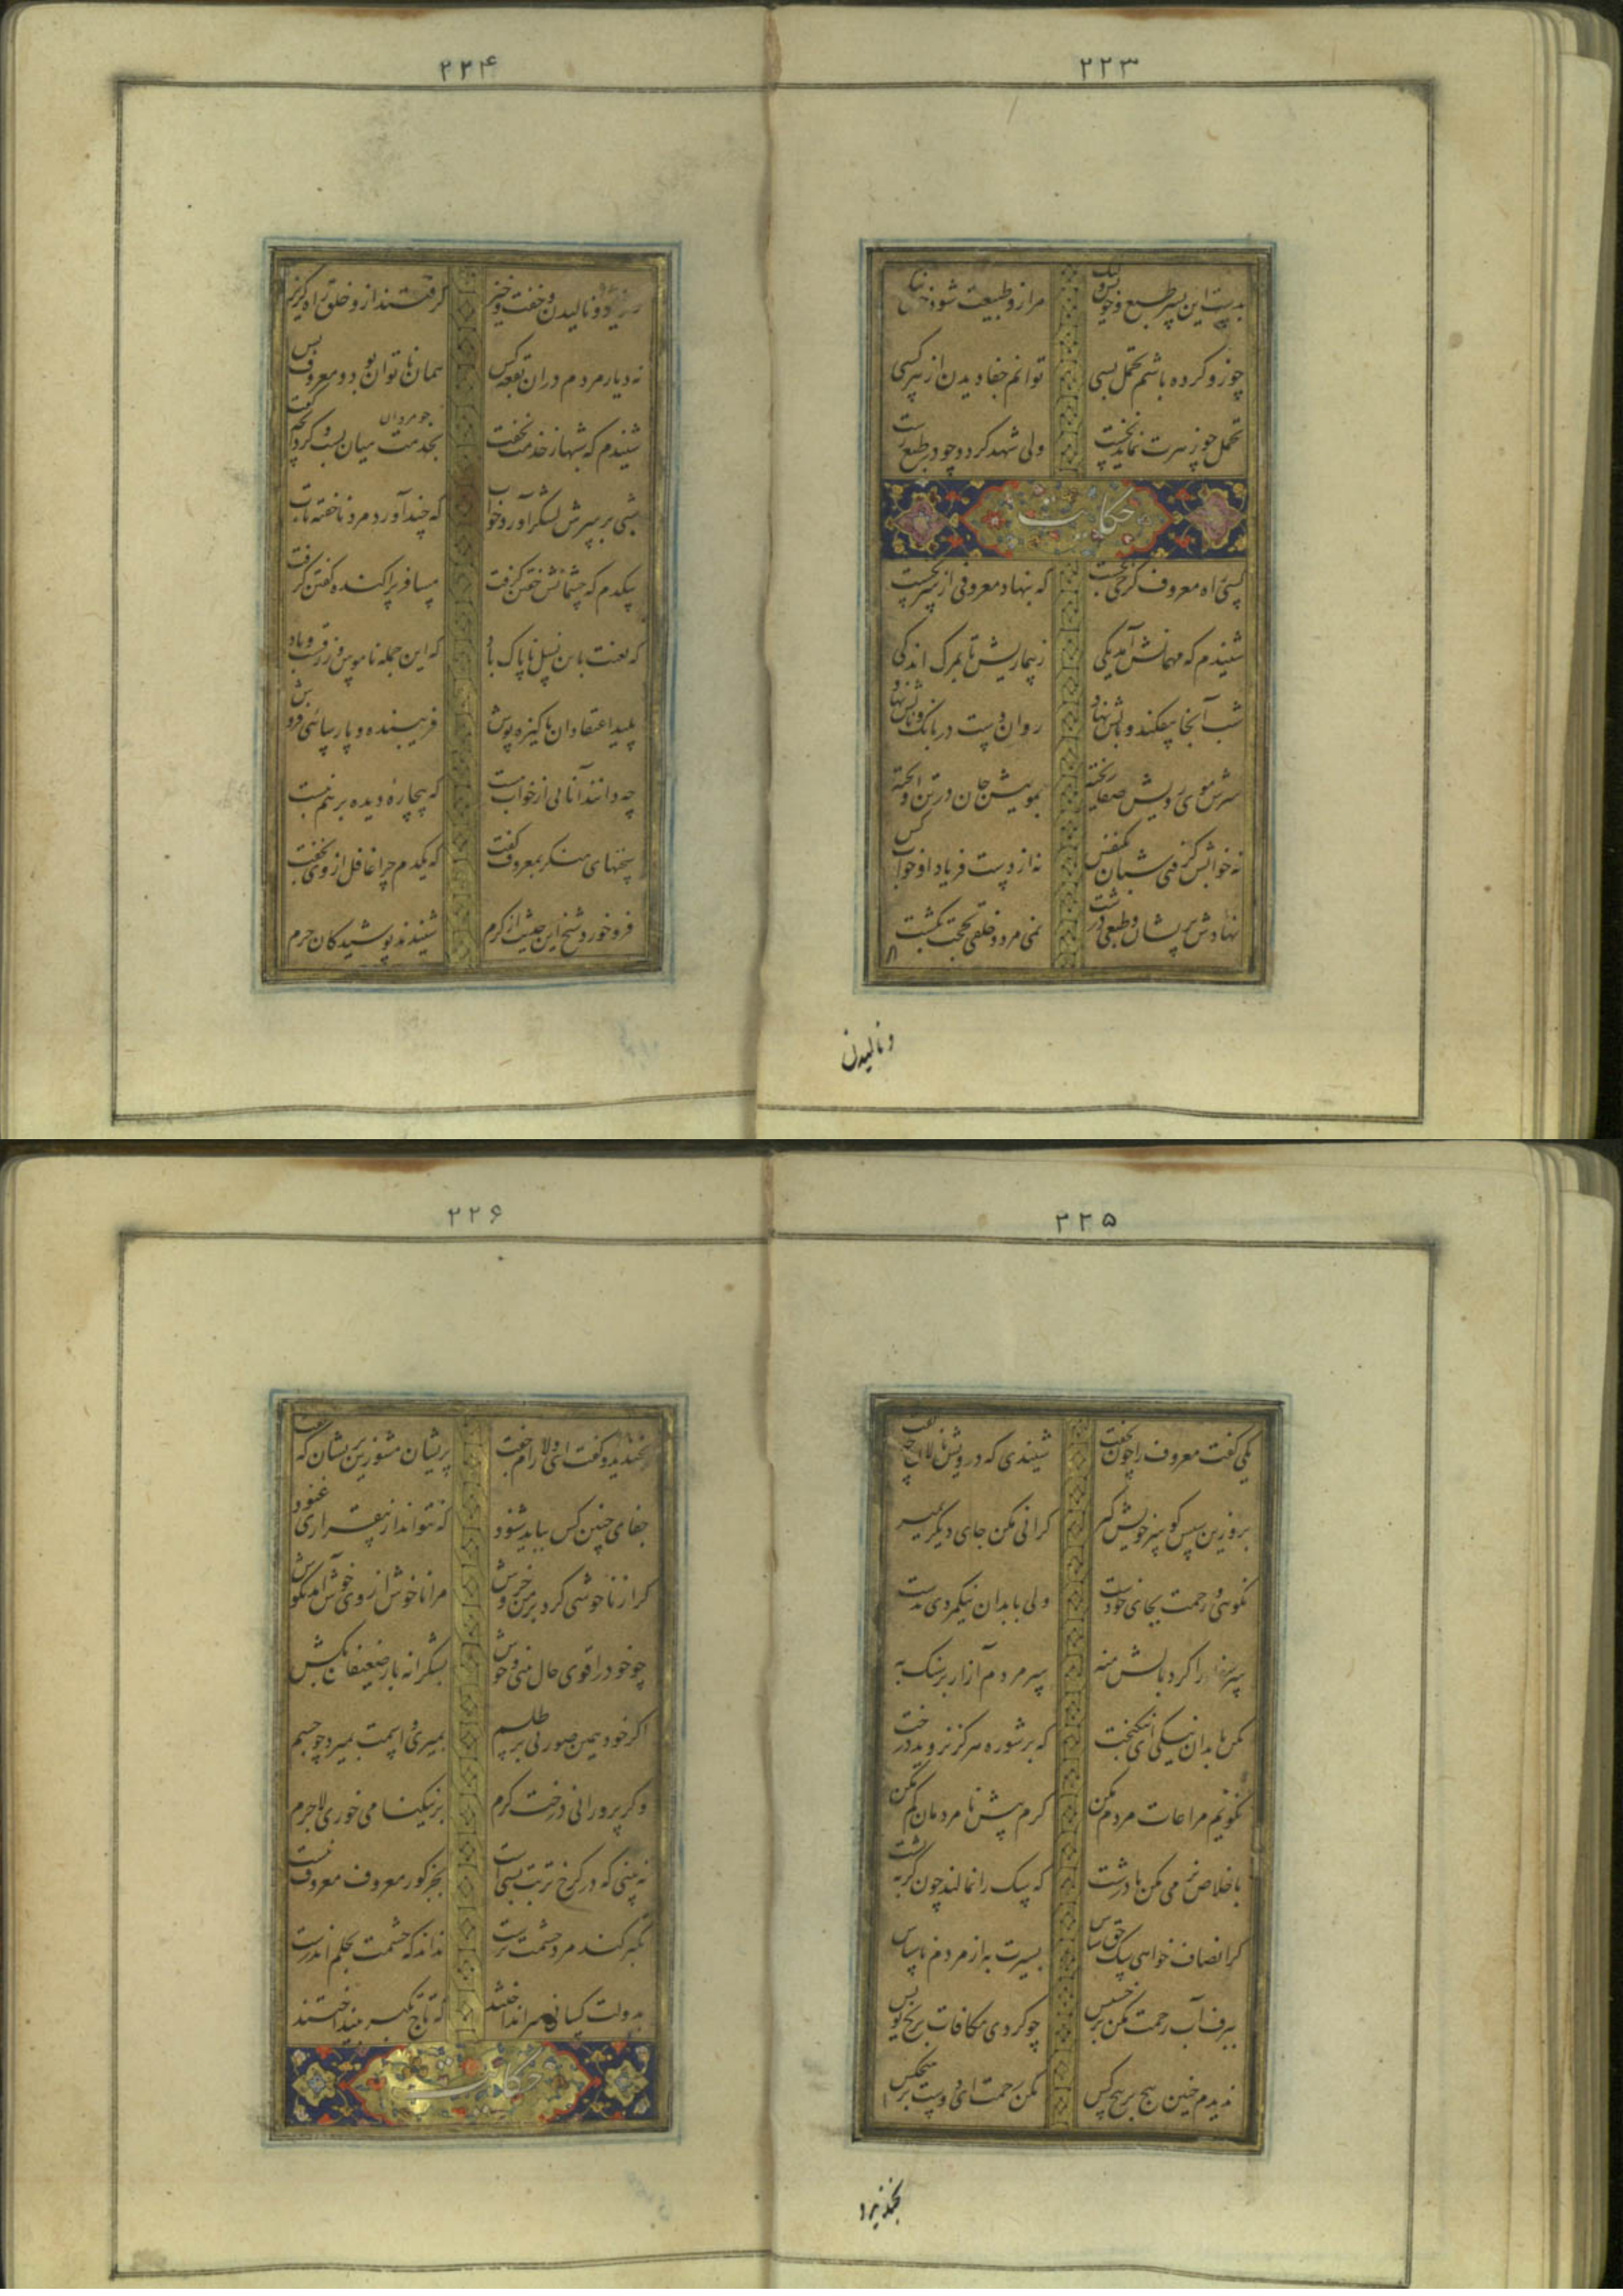 ۲۲۳
بدست این پسر طبع و خویش ولیک مرا زو طبیعت شود خوی نیک
چو زو کرده باشم تحمل بسی توانم جفا دیدن از هر کسی
تحمل چو زهرت نماید نخست ولی شهد گردد چو در طبع رست
حکایت
کسی راه معروف کرخی بجست که بنهاد معروفی از سر نخست
شنیدم که مهمانش آمد یکی ز بیماریش تا بمرگ اندکی
شب آنجا بیفکند و بالش نهاد روان دست در بانگ و نالش نهاد
سرش موی و رویش صفا ریخته بموییش جان در تن آویخته
نه خوابش گرفتی شبان یکنفس نه از دست فریاد او خواب کس
نهادش پریشان و طبعی درشت نمی مرد و خلقی بحجت بکشت
و نالیدن
۲۲۴
ز فریاد و نالیدن و خفت و خیز گرفتند ازو خلق راه گریز
نه دیار مردم در آن بقعه کس همان ناتوان بود و معروف بس
شنیدم که شبها ز خدمت نخفت چو مردان بخدمت میان بست و کرد آنچه گفت
شبی بر سرش لشکر آورد خواب که چند آورد مرد ناخفته تاب
بیکدم که چشمانش خفتن گرفت مسافر پراکنده گفتن گرفت
که لعنت باین نسل ناپاک باد که این جمله ناموس و زرقند و باد
پلید اعتقادان پاکیزه پوش فریبنده و پارسائی فروش
چه دانند آنانی از خواب مست که بیچارهٔ دیده بر هم نبست
سخنهای منکر بمعروف گفت که یکدم چرا غافل از وی بخفت
فرو خورد شیخ این حدیث از کرم شنیدند پوشیدگان حرم
۲۲۵
یکی گفت معروف را چون نهفت شنیدی که درویش نالان چه گفت
برو زین سپس گو سر خویش گیر گرانی مکن جای دیگر بمیر
نکوئی و رحمت بجای خودست ولی با بدان نیکمردی بدست
سر سفله را گرد بالش منه سر مردم آزار بر سنگ به
مکن با بدان نیکی ای نیکبخت که بر شوره هرگز نروید درخت
نگویم مراعات مردم مکن کرم پیش نامردمان گم مکن
باخلاص نرمی مکن با درشت که سگ را نمالند چون گربه پشت
گر انصاف خواهی سگ حق شناس بسیرت به از مردم ناسپاس
ببرف آب رحمت مکن بر خسیس چو کردی مکافات بر یخ نویس
ندیدم چنین پیچ بر پیچ کس مکن رحمت ای دوست بر هیچکس
بخندید و
۲۲۶
بخندید و گفت ای دلارام جفت پریشان مشو زین پریشان که گفت
جفای چنین کس بباید شنود که نتواند از بیقراری غنود
گر از ناخوشی کرد بر من خروش مرا ناخوش از وی خوش آمد بگوش
چو خود را قوی حال بینی و خوش بشکرانه بار ضعیفان بکش
اگر خود همین صورتی بر طلسم بمیری و اسمت بمیرد چو جسم
وگر پرورانی درخت کرم بر نیکنامی خوری لاجرم
نه بینی که در کرخ تربت بسیست بجز گور معروف معروف نیست
تکبر کند مرد حشمت پرست نداند که حشمت بحلم اندرست
بدولت کسانی سر انداختند که تاج تکبر بینداختند
حکایت